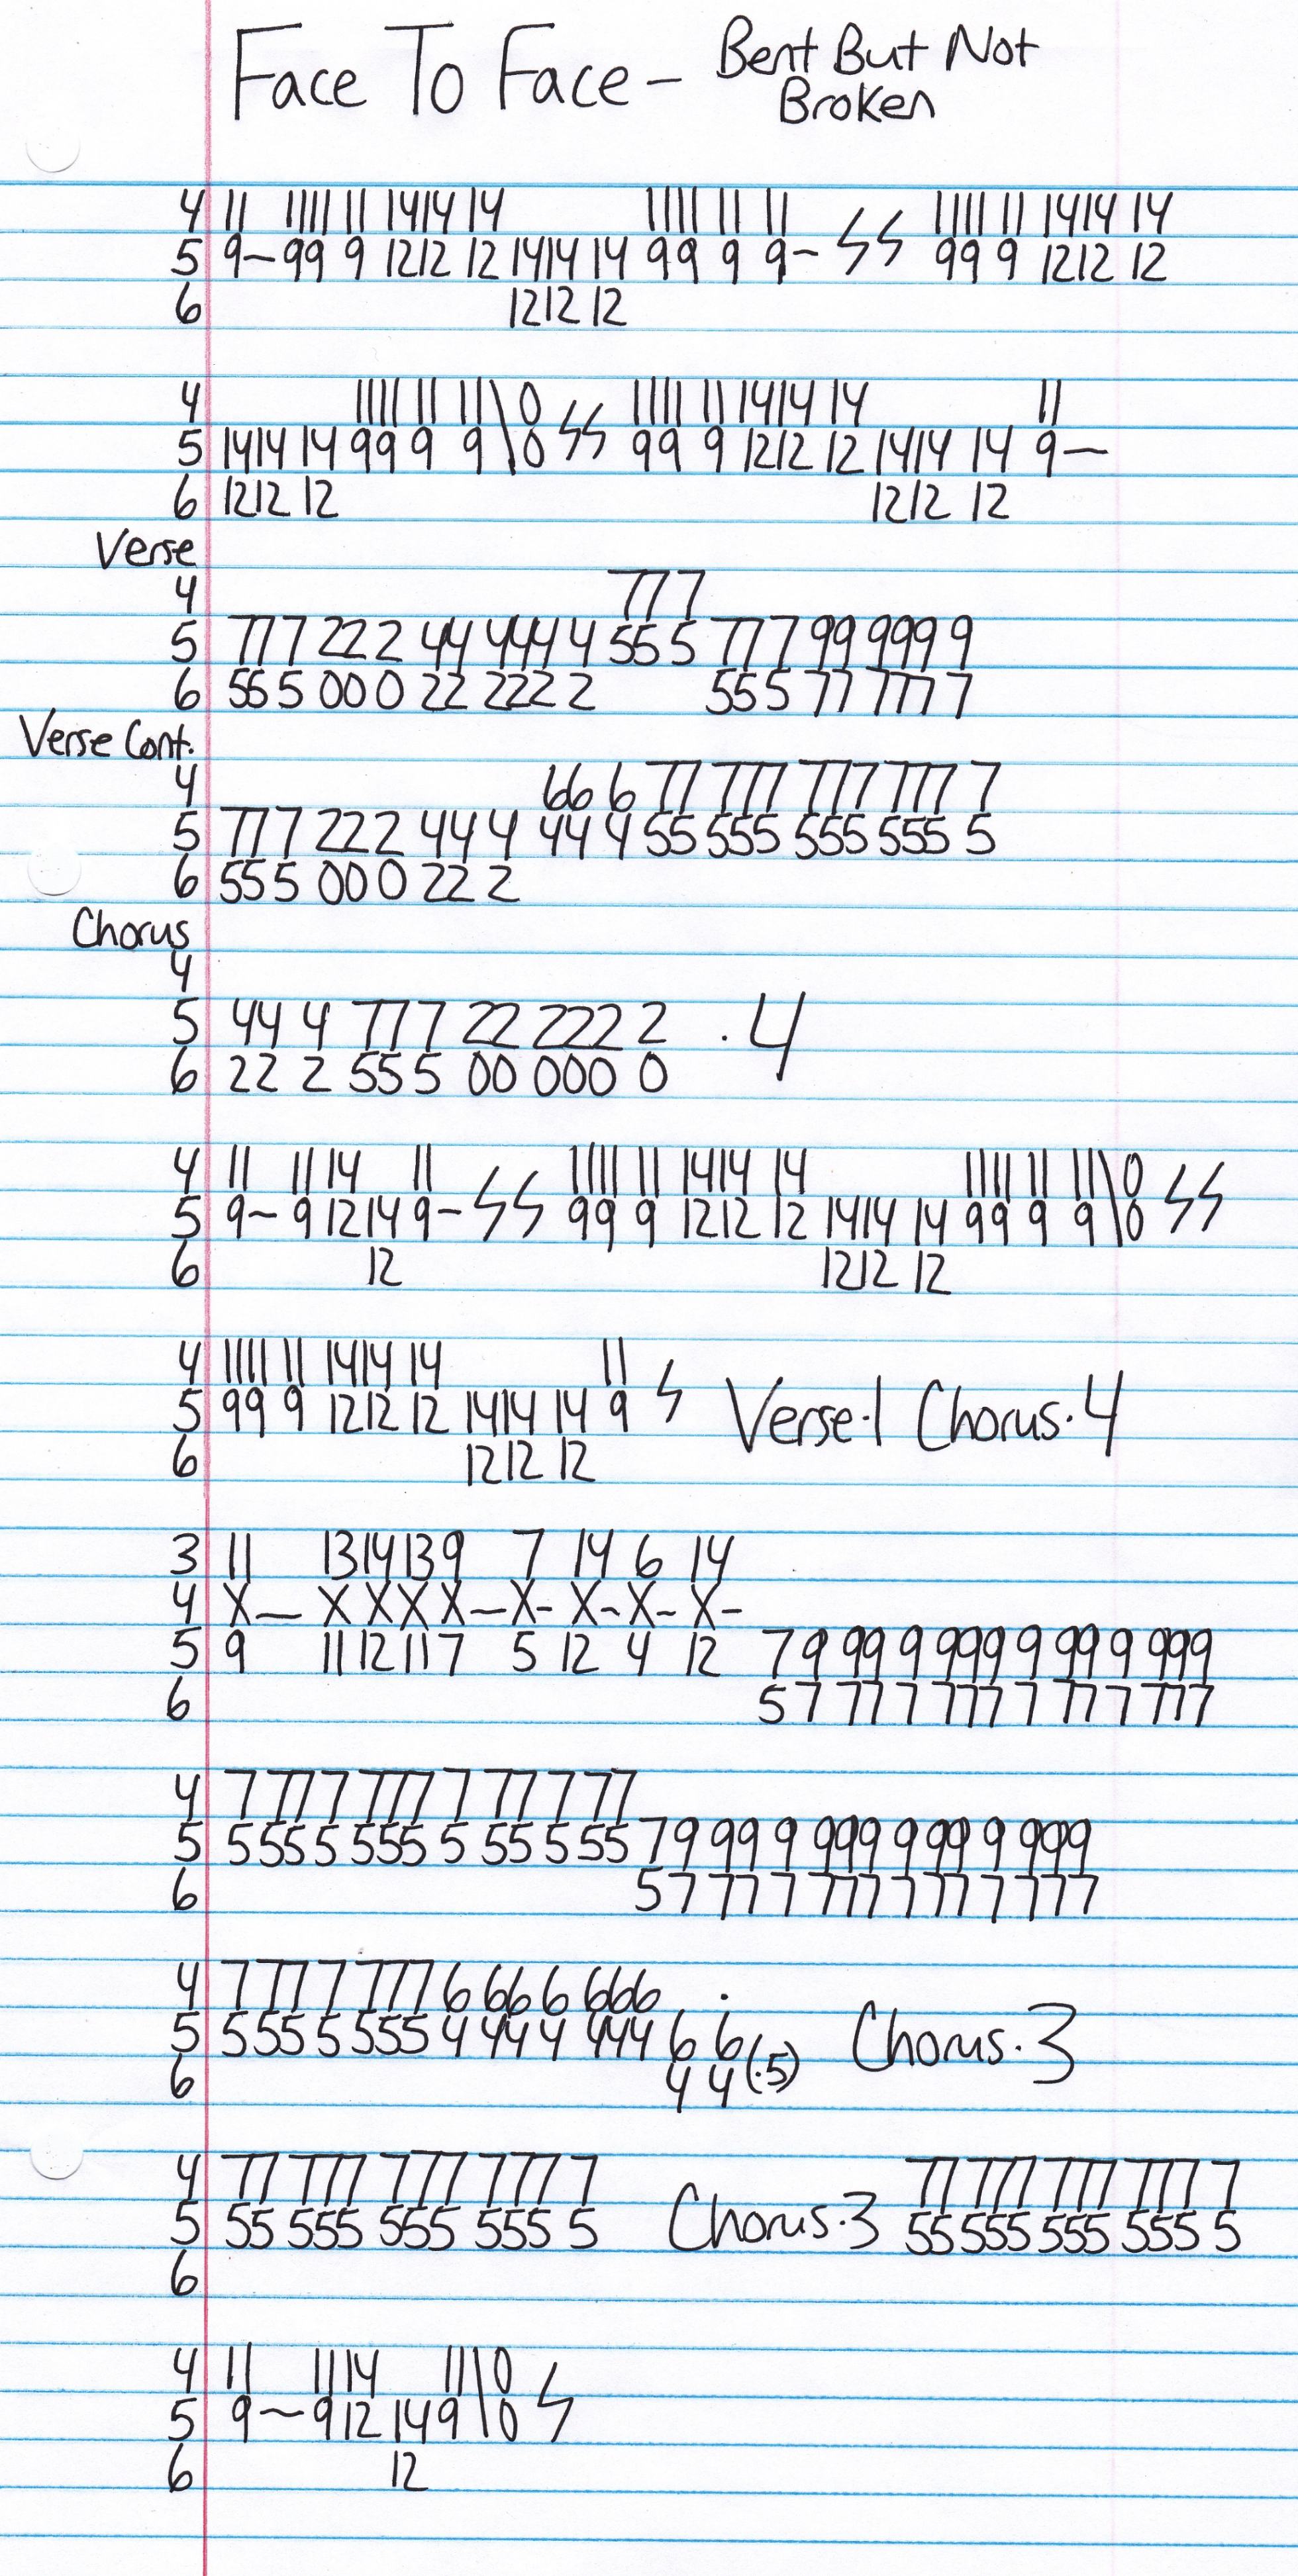 Face To Face - Bent But Not
Broken
4 11 1111 11 1414 14 1111 11 11 1111 11 1414 14
5 9- 99 9 1212 12 1414 14 99 9 9- ϟϟ 99 9 1212 12
6 1212 12
4 1111 11 11\0 1111 11 1414 14 11
5 1414 14 99 9 9\0 ϟϟ 99 9 1212 12 1414 14 9-
6 1212 12 1212 12
Verse
4 777
5 777 222 44 444 4 555 777 99 999 9
6 555 000 22 222 2 555 77 777 7
Verse Cont.
4 666 77 777 777 777 7
5 777 222 444 444 55 555 555 555 5
6 555 000 222
Chorus
4
5 44 4 777 22 222 2 .4
6 22 2 555 00 000 0
4 11 11 14 11 1111 11 1414 14 1111 11 11\0
5 9- 9 12 14 9- ϟϟ 99 9 1212 12 1414 14 99 9 9\0 ϟϟ
6 12 1212 12
4 1111 11 1414 14 11
5 99 9 1212 12 1414 14 9 ϟ Verse.1 Chorus.4
6 1212 12
3 11 13 14 13 9 7 14 6 14
4 X- X X X X- X- X- X- X-
5 9 11 12 11 7 5 12 4 12 7 9 99 9 999 9 99 9 999
6 5 7 77 7 777 7 77 7 777
4 7 77 7 777 7 77 7 77
5 5 55 5 555 5 55 5 55 7 9 99 9 999 9 99 9 999
6 5 7 77 7 777 7 77 7 777
4 7 77 7 777 6 66 6 666 .
5 5 55 5 555 4 44 4 444 6 6 Chorus.3
6 4 4(.5)
4 77 777 777 777 7 77 777 777 777 7
5 55 555 555 555 5 Chorus.3 55 555 555 555 5
6
4 11 11 14 11\0
5 9- 9 12 14 9\0 ϟ
6 12